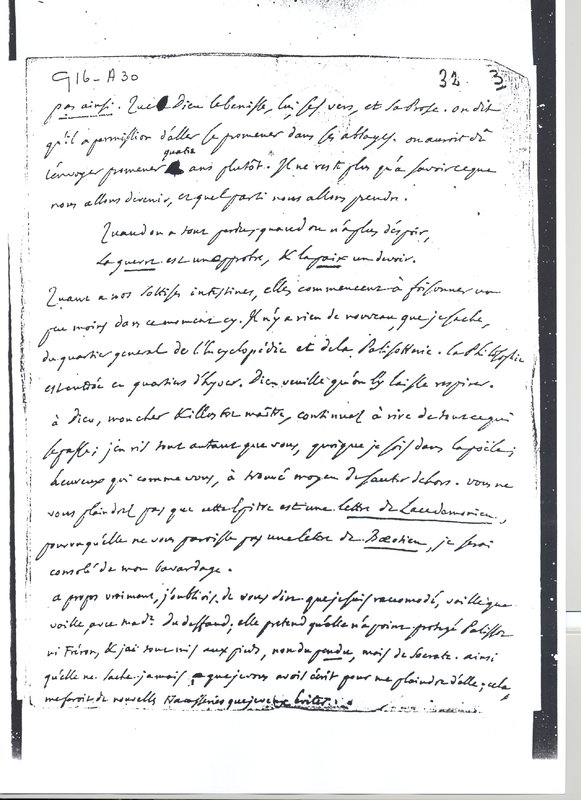 G16-A30
32 3
pas ainsi. Que Dieu le benisse, lui ses vers, et sa Prose. on dit
qu'il a permission d'aller se promener dans ses abbayes. on auroit dû
l'envoyer promener quatre ans plutôt. Il ne reste plus qu'à savoir ce que
nous allons devenir, et quel parti nous allons prendre.
Quand on a tout perdu, quand on n'a plus d'espoir,
La guerre est un opprobre, & la paix un devoir.
Quant a nos sottises intestines, elles commencent à foisonner un
peu moins dans ce moment cy. Il n'y a rien de nouveau, que je sache,
du quartier general de l'Encyclopédie et de la Palissotterie. la Philosophie
est entrée en quartiers d'hyver. Dieu veuille qu'on l'y laisse respirer.
à Dieu, mon cher & illustre maître, continuez à rire de tout ce qui
se passe; j'en ris tout autant que vous, quoique je sois dans la poële;
heureux qui comme vous, à trouvé moyen de sauter dehors. vous ne
vous plaindrez pas que cette Epitre est une lettre de Lacedemonien,
pourvu qu'elle ne vous paroisse pas une lettre de Bœotien, je serai
consolé de mon bavardage.
a propos vraiment, j'oubliois de vous dire que je suis raccomodé, vaille que
vaille, avec Made. Du deffand; elle pretend qu'elle n'a point protegé Palissot
ni Fréron, & j'ai tout mis aux pieds, non du pendu, mais de Socrate. ainsi
qu'elle ne sache jamais que je vous avois écrit pour me plaindre d'elle; cela
me feroit de nouvelles tracasseries que je veux éviter.